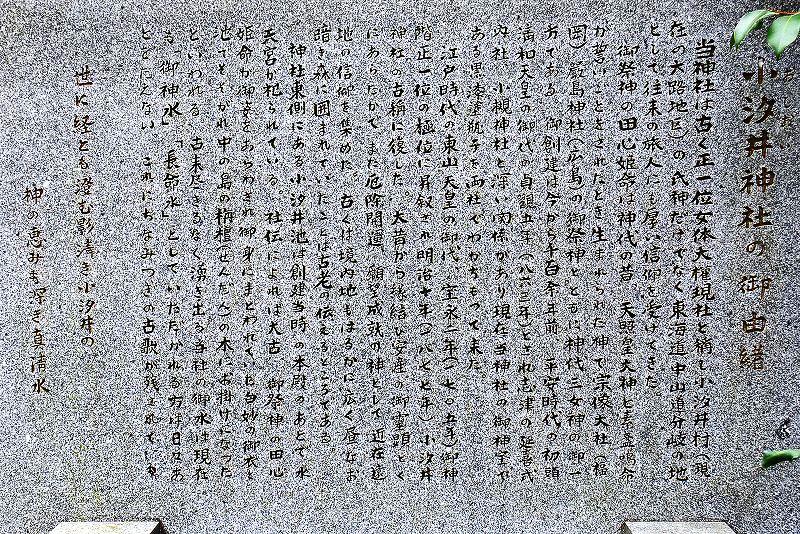 小汐井神社の御由緒
当神社は古く正一位女体大権現社と称し小汐井村（現
在の大路地区）の氏神だけでなく東海道中山道分岐の地
として往来の旅人にも厚い信仰を受けてきた
御祭神の田心姫命は神代の昔、天照皇大神と素盞嗚命
が誓いごとをされたとき生まれられた神で宗像大社（福
岡）厳島神社（広島）の御祭神とともに神代三女神の御一
方である 御創建は今から千百余年前、平安時代の初頭
清和天皇の御代の貞観五年（八六三年）とされ志津の延喜式
内社 小槻神社と深い関係があり現在当神社の御神宝で
ある黒漆塗瓶子を両社でわかちもって来た
江戸時代の東山天皇の御代、宝永二年（一七〇五年）御神
階正一位の極位に昇叙され明治十年（一八七七年）小汐井
神社の古称に復した 大昔から縁結び安産の御霊顕とく
にあらたかで また厄除開運、願望成就の神として近在近
地の信仰を集めた 古くは境内地もはるかに広く昼なお
暗き森に囲まれていたことは古老の伝えるところである
神社東側にある小汐井池は創建当時の本殿のあとで水
天宮が祀られている 社伝によれば太古 御祭神の田心
姫命が御姿をあらわされ御身にまとわれていた白妙の御衣を
池ですすがれ中の島の栴檀（せんだん）の木にお掛けになった
といわれる 古来尽きるなく湧き出る当社の御水は現在
も「御神水」「長命水」としていただかれる方は日々あ
とをたえない これにちなみつぎの古歌が残されている
世に経とも 澄む影清き小汐井の
神の恵みも深き真清水